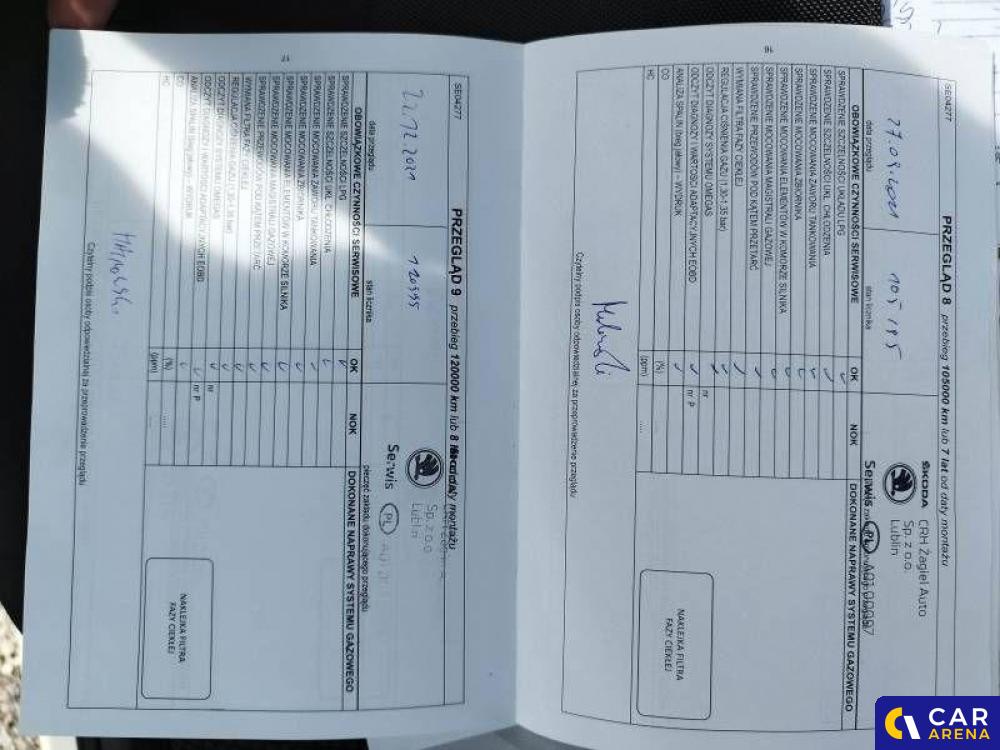 16
SE04277
PRZEGLĄD 8 przebieg 105000 km lub 7 lat od daty montażu
27.09.2021
data przeglądu
105 195
stan licznika
ŠKODA
Serwis
CRH Żagiel Auto
Sp. z o.o.
Lublin
PL
OBOWIĄZKOWE CZYNNOŚCI SERWISOWE OK NOK DOKONANE NAPRAWY SYSTEMU GAZOWEGO
SPRAWDZENIE SZCZELNOŚCI UKŁADU LPG
SPRAWDZENIE SZCZELNOŚCI UKŁ. CHŁODZENIA
SPRAWDZENIE MOCOWANIA ZAWORU TANKOWANIA
SPRAWDZENIE MOCOWANIA ZBIORNIKA
SPRAWDZENIE MOCOWANIA ELEMENTÓW W KOMORZE SILNIKA
SPRAWDZENIE MOCOWANIA MAGISTRALI GAZOWEJ
SPRAWDZENIE PRZEWODÓW POD KĄTEM PRZETARĆ
WYMIANA FILTRA FAZY CIEKŁEJ
REGULACJA CIŚNIENIA GAZU (1.30-1.35 bar)
ODCZYT DIAGNOZY SYSTEMU OMEGAS nr
ODCZYT DIAGNOZY I WARTOŚCI ADAPTACYJNYCH EOBD nr P
ANALIZA SPALIN (bieg jałowy) – WYDRUK
CO (%)
HC (ppm) .....
NAKLEJKA FILTRA
FAZY CIEKŁEJ
Czytelny podpis osoby odpowiedzialnej za przeprowadzenie przeglądu
17
SE04277
PRZEGLĄD 9 przebieg 120000 km lub 8 lat od daty montażu
22.12.2021
data przeglądu
120395
stan licznika
Serwis
Sp. z o.o.
Lublin
PL
pieczęć zakładu dokonującego przeglądu
OBOWIĄZKOWE CZYNNOŚCI SERWISOWE OK NOK DOKONANE NAPRAWY SYSTEMU GAZOWEGO
SPRAWDZENIE SZCZELNOŚCI LPG
SPRAWDZENIE SZCZELNOŚCI UKŁ. CHŁODZENIA
SPRAWDZENIE MOCOWANIA ZAWORU TANKOWANIA
SPRAWDZENIE MOCOWANIA ZBIORNIKA
SPRAWDZENIE MOCOWANIA ELEMENTÓW W KOMORZE SILNIKA
SPRAWDZENIE MOCOWANIA MAGISTRALI GAZOWEJ
SPRAWDZENIE PRZEWODÓW POD KĄTEM PRZETARĆ
WYMIANA FILTRA FAZY CIEKŁEJ
REGULACJA CIŚNIENIA GAZU (1.30-1.35 bar)
ODCZYT DIAGNOZY SYSTEMU OMEGAS nr
ODCZYT DIAGNOZY I WARTOŚCI ADAPTACYJNYCH EOBD nr P
ANALIZA SPALIN (bieg jałowy) – WYDRUK
CO (%) .....
HC (ppm) .....
NAKLEJKA FILTRA
FAZY CIEKŁEJ
Czytelny podpis osoby odpowiedzialnej za przeprowadzenie przeglądu
CAR
ARENA